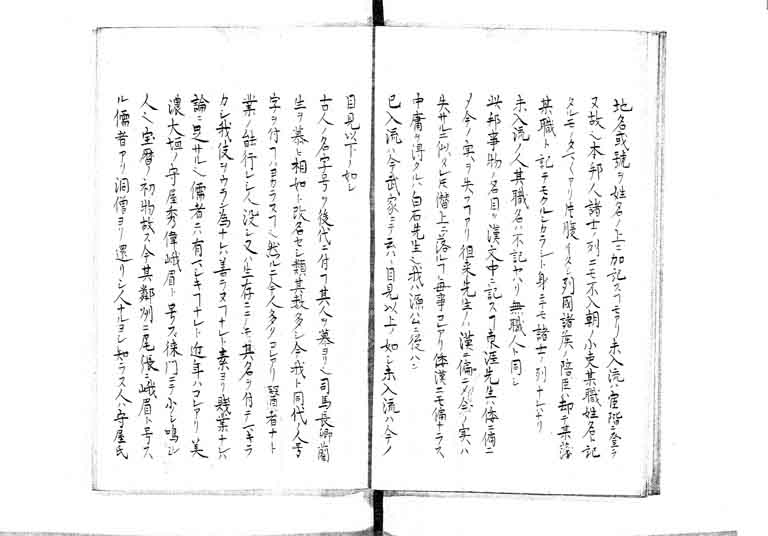 地名或號ヲ姓名ノ上ニ加記スルコトアリ未入流ハ官階ニ登ラ
又故ニ本邦人諸士ノ列ニモ不入朝ノ小吏某職姓名ト記
タルモノタマ〱アリ片腹イタシ列國諸族ノ陪臣ハ却テ某藩
某職ト記テモクルシカラシト身ニテモ諸士ノ列ナレハナリ
未入流ノ人其職名ハ不記ヤハリ無職人ト同シ
此邦事物ノ名目ヲ漢文中ニ記スコト東涯先生ハ倭ニ偏ニ
〆今ノ実ヲ失フコアリ徂来先生ハ漢ニ偏ニ〆今ノ実ハ
失サルニ似タレ𪜈僭上ニ落ルコト毎事コレアリ倭漢ニモ偏ナラス
中庸ヲ得タルハ白石先生也我ハ源公ニ從ハン
已入流ハ今武家ニテ云ハヽ目見以上ノ如シ未入流ハ今ノ
目見以下ノ如シ
古人ノ名字号ヲ後代ニ付コト其人ヲ慕ヨリ也司馬長卿藺
生ヲ慕ヒ相如ト改名セシ類其数多シ今我ト同代ノ人号
字ヲ付コトハヨカラヌコト也然ルニ今人多クコレアリ醫者ナト
業ノ能行レシ人没シ又ハ生存ニテモ其名ヲ付テマキラ
カシ我伎ヲウラン為ナレハ善ラヌコトナレト素ヨリ賤業ナレハ
論ニ足サル也儒者ニハ有マシキコトナレト近年ハコレアリ美
濃大垣ノ守屋秀偉峨眉ト号ス徠門ニテ少シ鳴シ
人也宝暦ノ初物故ス今其鄰州ニ尾張ニ峨眉ト号ス
ル儒者アリ洞僧ヨリ還リシ人ナルヨシ知ラヌ人ハ守屋氏